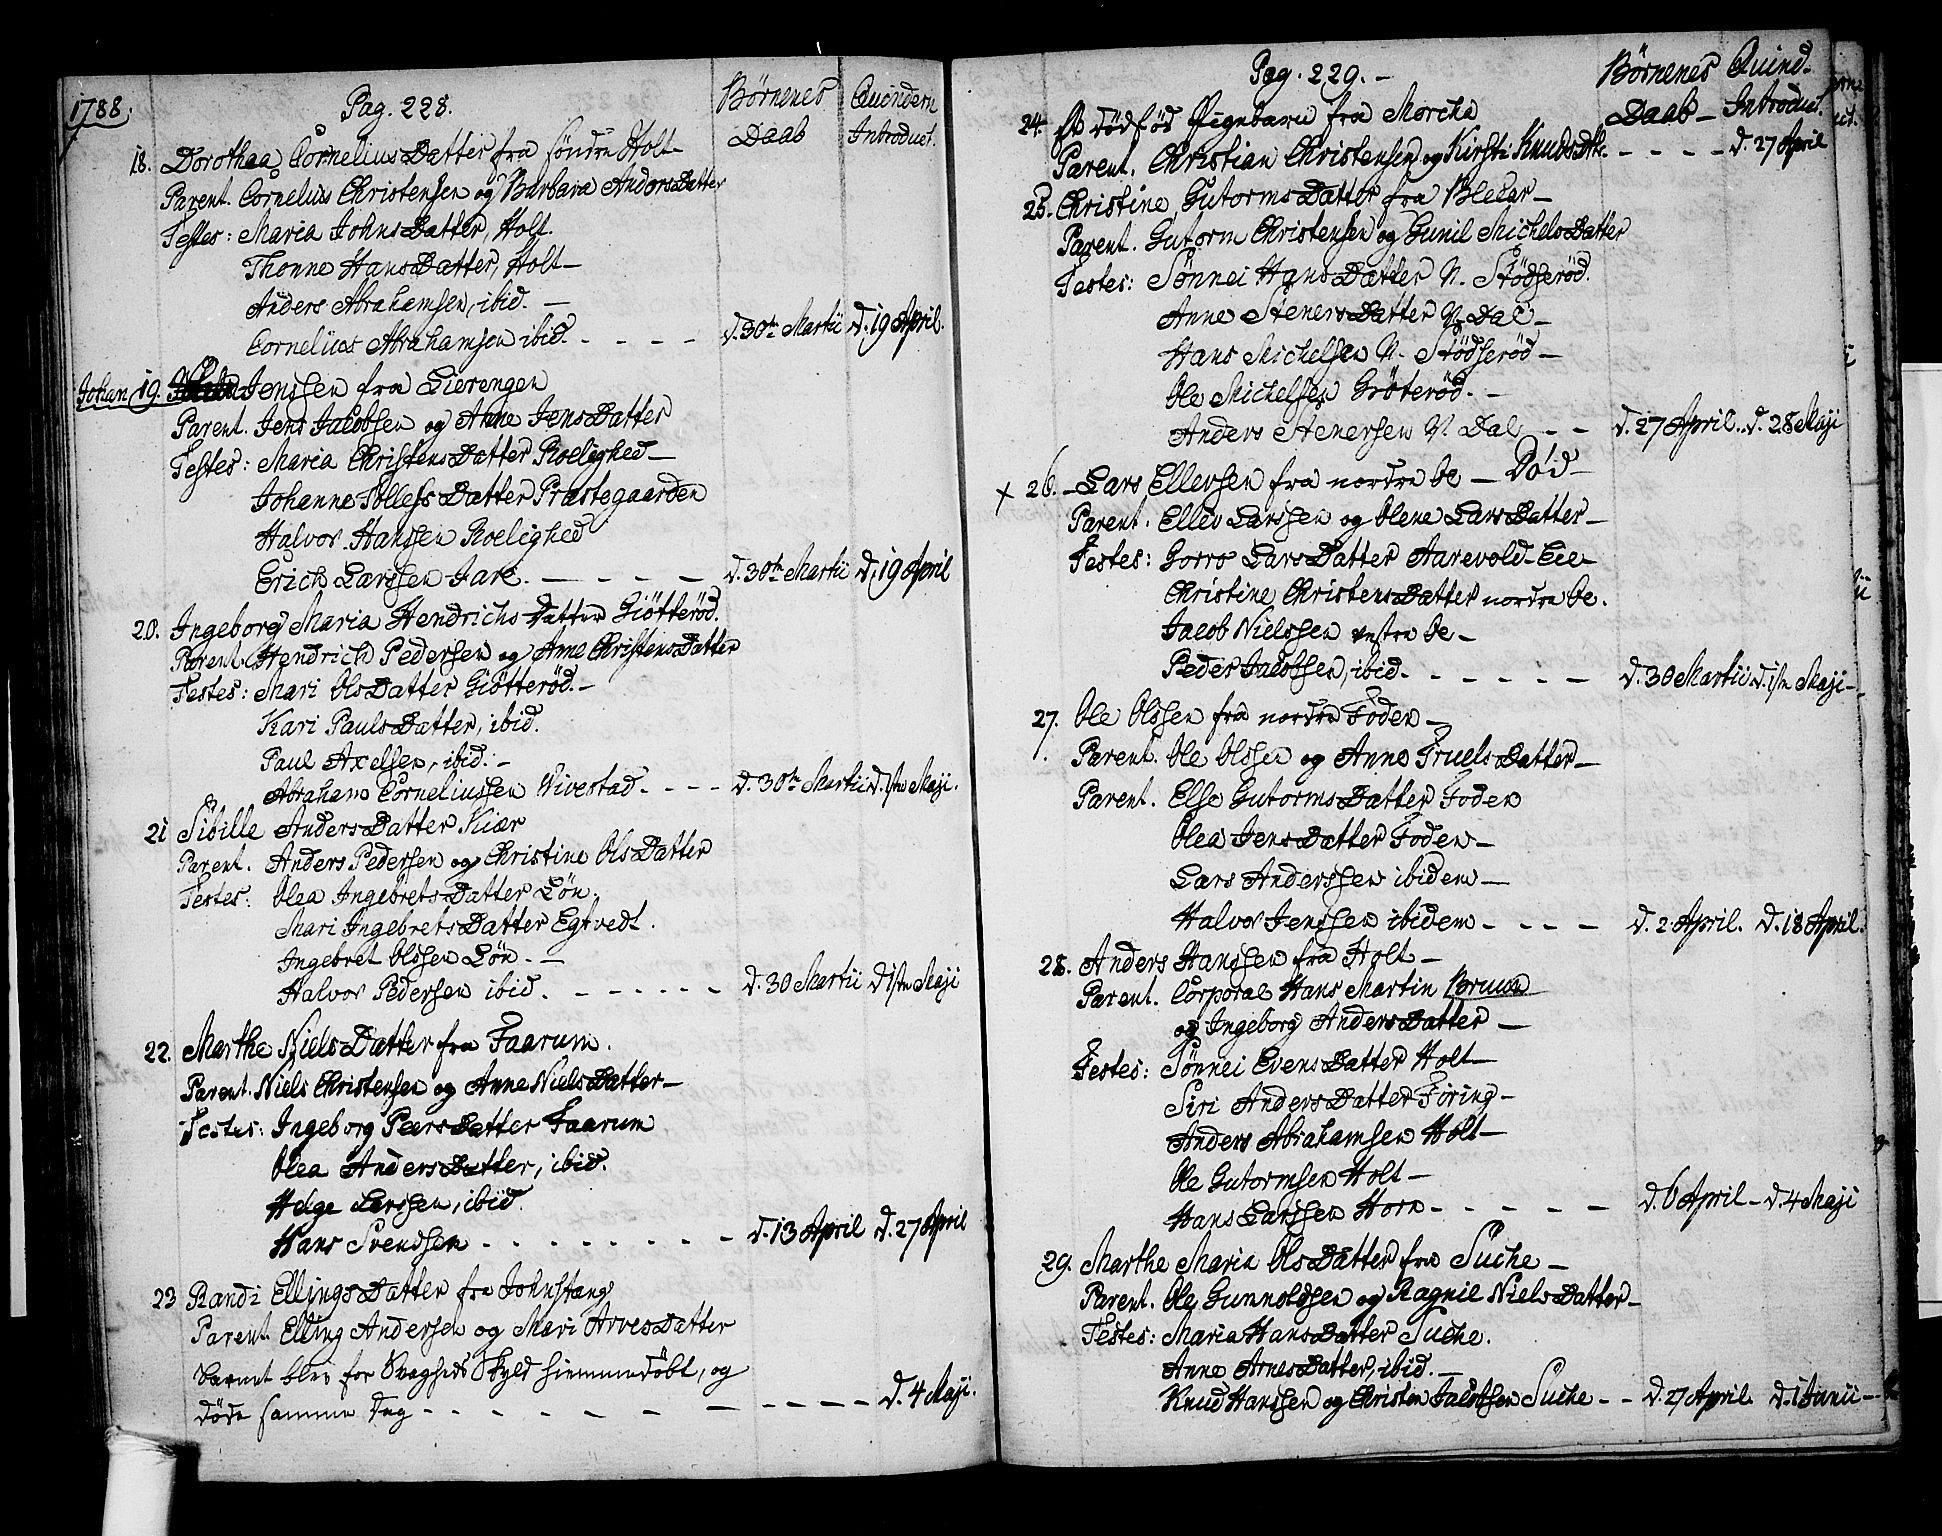 1788.
Pag. 228.
Börnenes Daab
Qvindern Introduct.
18. Dorothea Cornelius Datter fra söndre Holt
Parent. Cornelius Christensen og Barbara Anders Datter
Testes: Maria Johns Datter, Holt.
Thonne Hans Datter, Holt
Anders Abrahamsen, ibid.
Cornelius Abrahamsen ibid. d. 30te Martii d. 19 April.
Johan 19. Jenssen fra Lierengen
Parent. Jens Jacobsen og Anne Jens Datter
Testes: Maria Christens Datter Roelighed
Johanne Datter Præstegaarden
Halvor Hanssen Roelighed
Erich Larssen Jare. d. 30te Martii d. 19 April
20. Ingeborg Maria Hendrichs Datter Giötteröd.
Parent. Hendrich Pedersen og Anne Christens Datter
Testes: Mari Ols Datter Giötteröd.
Kari Pauls Datter, ibid.
Paul Axelsen, ibid.
Abraham Corneliussen Vivestad. d. 30te Martii d. 1ste Maji.
21 Sibille Anders Datter Kiær
Parent. Anders Pedersen og Christine Ols Datter
Testes: Olea Ingebrets Datter Lön.
Mari Ingebrets Datter Egtvedt.
Ingebret Olssen Lön.
Halvor Pedersen ibid. d. 30 Martii d 1ste Maji
22. Marthe Niels Datter fra Faarum.
Parent. Niels Christensen og Anne Niels Datter
Testes: Ingeborg Peers Datter Faarum
Olea Anders Datter, ibid.
Helge Larssen, ibid.
Hans Svendsen d. 13 April d. 27 April
23 Randi Ellings Datter fra Johnstang
Parent. Elling Andersen og Mari Arves Datter
Barnet blev for Svagheds Skyld hiemmedöbt, og
döde samme Dag d. 4 Maji.
Pag. 229.
Börnenes Daab
Qvind. Introduct.
24. Et dödföd Pigebarn fra Morcka
Parent. Christian Christensen og Kirsti Knuds Dtr. d. 27 April
25. Christine Gutorms Datter fra Bleckar
Parent. Gutorm Christensen og Gunil Michels Datter
Testes: Sönnei Hans Datter N. Stödseröd.
Anne Steners Datter N. Dal
Hans Michelsen N. Stödseröd
Ole Michelsen Gröteröd.
Anders Stenersen N. Dal d. 27 April. d. 28 Maji
+ 26. Lars Ellevsen fra nordre Oe — Död
Parent. Ellev Larssen og Olene Lars Datter
Testes: Gorro Lars Datter Aarevold-Eie
Christine Christens Datter nordre Oe.
Jacob Nielssen vestre Oe
Peder Jacobsen, ibid. d. 30 Martii d. 1ste Maji
27. Ole Olssen fra nordre Foden
Parent. Ole Olssen og Anne Truels Datter
Parent. Else Gutorms Datter Foden
Olea Jens Datter Foden
Lars Anderssen ibidem
Halvor Jenssen ibidem d. 2 April. d. 18 April.
28. Anders Hanssen fra Holt
Parent. Corporal Hans Martin
og Ingeborg Anders Datter
Testes: Sönnei Evens Datter Holt
Siri Anders Datter Föring
Anders Abrahamsen Holt
Ole Gutormsen Holt
Hans Larssen Horn d. 6 April d. 4 Maji
29. Marthe Maria Ols Datter fra Suche
Parent. Ole Gunnoldsen og Ragnil Niels Datter
Testes: Maria Hans Datter Suche.
Anne Arnes Datter, ibid.
Knud Hanssen og Christen Jacobsen Suche d. 27 April d. 1 Junii